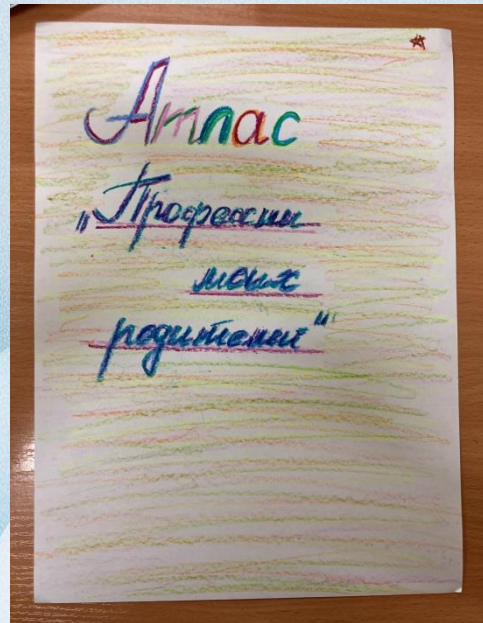 Атлас
„Профессии
моих
родителей"